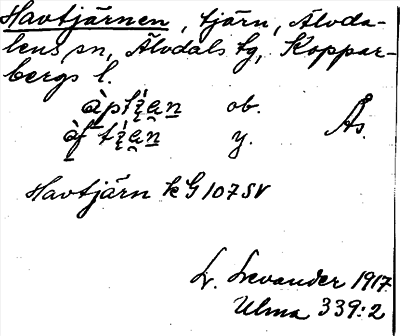 Havtjärnen, tjärn, Älvda-
lens sn, Älvdals tg, Koppar-
bergs l.
ob.
y. Ås.
Havtjärn k G 107 SV
L. Levander 1917
Ulma 339:2